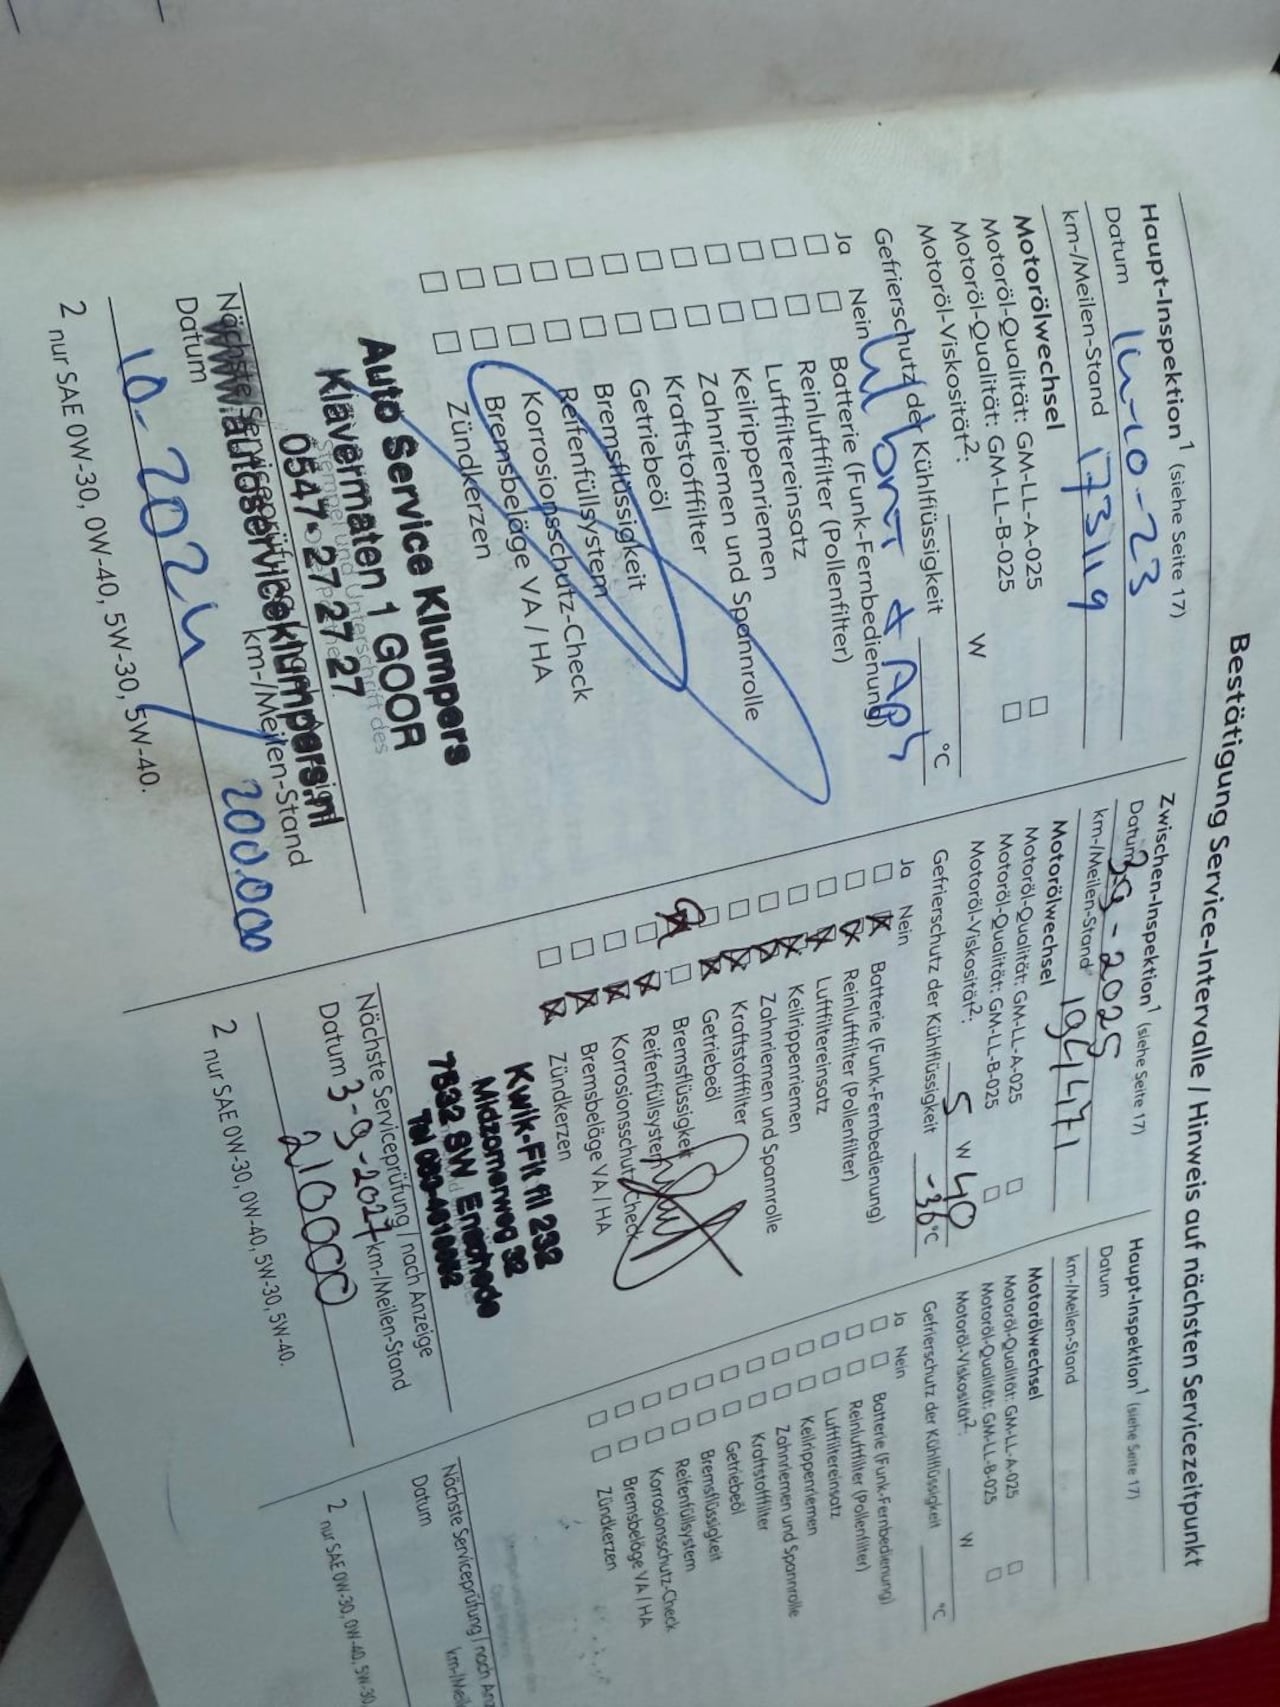 Bestätigung Service-Intervalle / Hinweis auf nächsten Servicezeitpunkt
Haupt-Inspektion¹ (siehe Seite 17)
Datum 14-10-23
km-/Meilen-Stand 173119
Motorölwechsel
Motoröl-Qualität: GM-LL-A-025
Motoröl-Qualität: GM-LL-B-025
Motoröl-Viskosität²: W
Gefrierschutz der Kühlflüssigkeit °C
Ja Nein
Batterie (Funk-Fernbedienung)
Reinluftfilter (Pollenfilter)
Luftfiltereinsatz
Keilrippenriemen
Zahnriemen und Spannrolle
Kraftstofffilter
Getriebeöl
Bremsflüssigkeit
Reifenfüllsystem
Korrosionsschutz-Check
Bremsbeläge VA / HA
Zündkerzen
Auto Service Klumpers
Klavermaten 1 GOOR
0547-27 27 27
www.autoserviceklumpers.nl
Stempel und Unterschrift des
Nächste Serviceprüfung
Datum km-/Meilen-Stand
10-2024 / 200.000
2 nur SAE 0W-30, 0W-40, 5W-30, 5W-40.
Zwischen-Inspektion¹ (siehe Seite 17)
Datum 3-9-2025
km-/Meilen-Stand 194471
Motorölwechsel
Motoröl-Qualität: GM-LL-A-025
Motoröl-Qualität: GM-LL-B-025
Motoröl-Viskosität²: 5 W 40
Gefrierschutz der Kühlflüssigkeit -36 °C
Ja Nein
Batterie (Funk-Fernbedienung)
Reinluftfilter (Pollenfilter)
Luftfiltereinsatz
Keilrippenriemen
Zahnriemen und Spannrolle
Kraftstofffilter
Getriebeöl
Bremsflüssigkeit
Reifenfüllsystem
Korrosionsschutz-Check
Bremsbeläge VA / HA
Zündkerzen
Kwik-Fit fil 232
7532 SW Enschede
Nächste Serviceprüfung / nach Anzeige
Datum 3-9-2027 km-/Meilen-Stand
210000
2 nur SAE 0W-30, 0W-40, 5W-30, 5W-40.
Haupt-Inspektion¹ (siehe Seite 17)
Datum
km-/Meilen-Stand
Motorölwechsel
Motoröl-Qualität: GM-LL-A-025
Motoröl-Qualität: GM-LL-B-025
Motoröl-Viskosität²: W
Gefrierschutz der Kühlflüssigkeit °C
Ja Nein
Batterie (Funk-Fernbedienung)
Reinluftfilter (Pollenfilter)
Luftfiltereinsatz
Keilrippenriemen
Zahnriemen und Spannrolle
Kraftstofffilter
Getriebeöl
Bremsflüssigkeit
Reifenfüllsystem
Korrosionsschutz-Check
Bremsbeläge VA / HA
Zündkerzen
Nächste Serviceprüfung / nach Anz
Datum km-/Meil
2 nur SAE 0W-30, 0W-40, 5W-30,